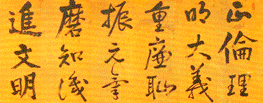 正倫理
明大義
重廉恥
振元氣
磨知識
進文明